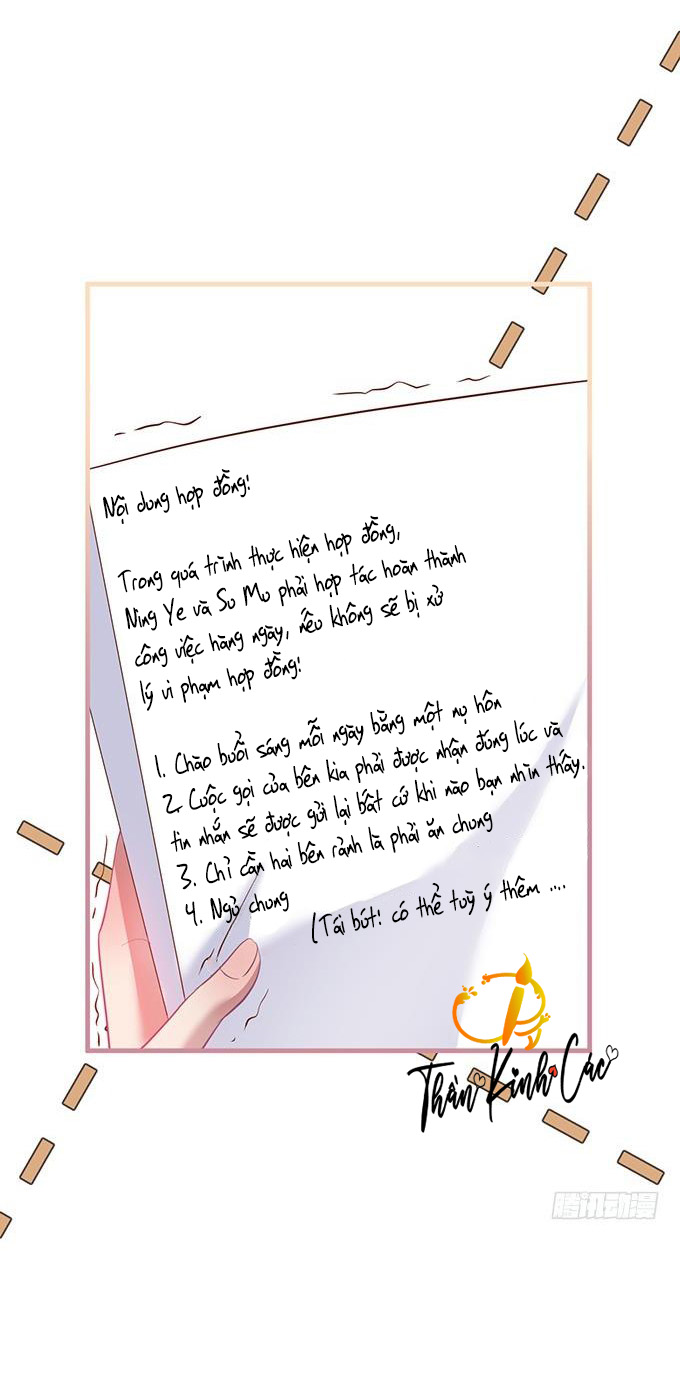 Nội dung hợp đồng:
Trong quá trình thực hiện hợp đồng,
Ning Ye và Su Mu phải hợp tác hoàn thành
công việc hàng ngày, nếu không sẽ bị xử
lý vi phạm hợp đồng:
1. Chào buổi sáng mỗi ngày bằng một nụ hôn
2. Cuộc gọi của bên kia phải được nhận đúng lúc và
tin nhắn sẽ được gửi lại bất cứ khi nào bạn nhìn thấy.
3. Chỉ cần hai bên rảnh là phải ăn chung
4. Ngủ chung
(Tái bút: có thể tuỳ ý thêm ....
Thần Kinh Các
腾讯动漫